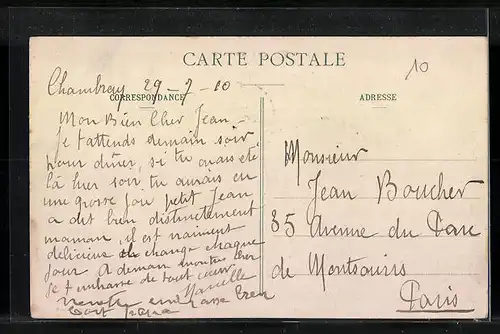 CARTE POSTALE
10
Chambrecy 29-7-10
CORRESPONDANCE
ADRESSE
Mon Bien Cher Jean
Je t'attends demain soir
pour dîner, si tu avais été
là hier soir, tu aurais eu
une grosse joie petit Jean
a dit bien distinctement
maman, il est vraiment
délicieux change chaque
jour. A demain cher
je t'embrasse de tout cœur
Marcelle
Monsieur
Jean Boucher
85 Avenue du Parc
de Montsouris
Paris